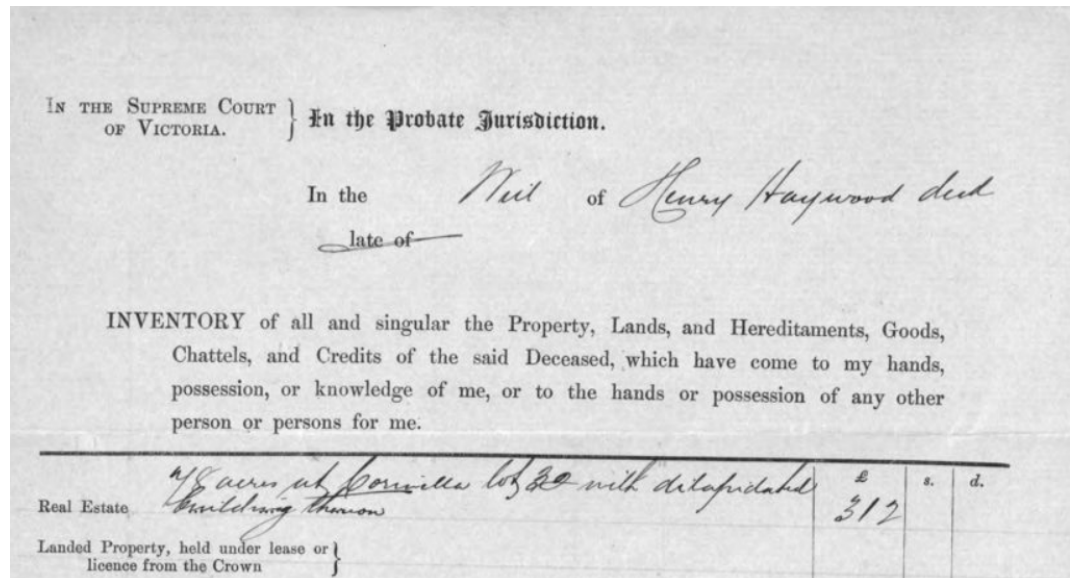 IN THE SUPREME COURT
OF VICTORIA.
In the Probate Jurisdiction.
In the Will of Henry Haywood decd
late of
INVENTORY of all and singular the Property, Lands, and Hereditaments, Goods,
Chattels, and Credits of the said Deceased, which have come to my hands,
possession, or knowledge of me, or to the hands or possession of any other
person or persons for me.
acres at lot 32 with dilapidated £ s. d.
Real Estate building thereon 312
Landed Property, held under lease or
licence from the Crown